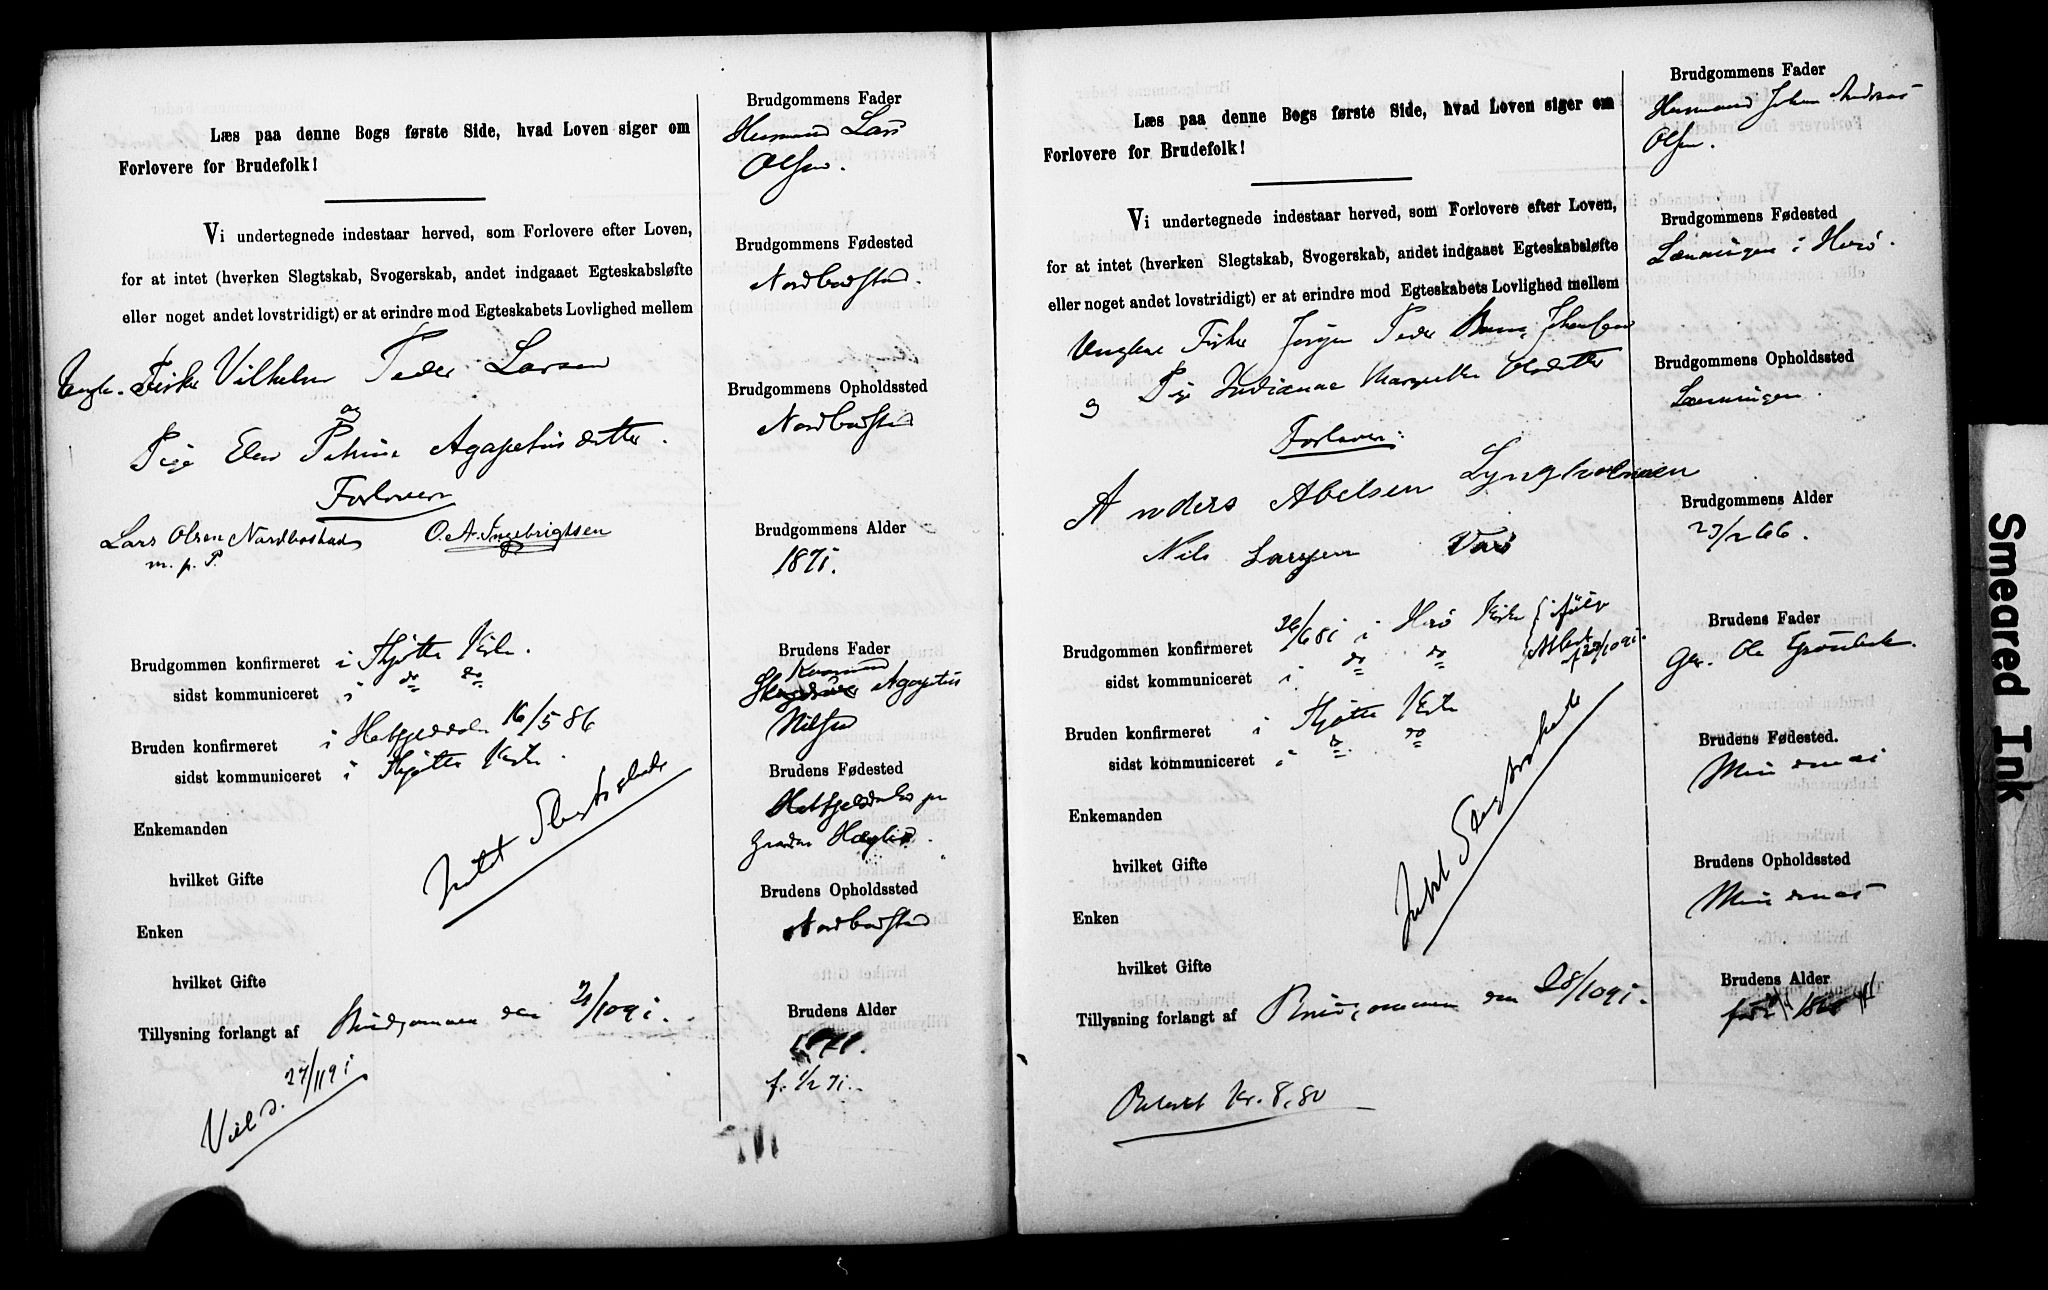 Læs paa denne Bogs første Side, hvad Loven siger om
Forlovere for Brudefolk!
Vi undertegnede indestaar herved, som Forlovere efter Loven,
for at intet (hverken Slegtskab, Svogerskab, andet indgaaet Egteskabsløfte
eller noget andet lovstridigt) er at erindre mod Egteskabets Lovlighed mellem
Ungk. Fisker Vilhelm Peder Larsen
og
Pige Elen Petrine Agapetusdatter.
Forlovere
Lars Olsen Nordbostad O. A. Ingebrigtsen
m. p. P.
Brudgommen konfirmeret i Thjøtta Kirke.
sidst kommuniceret i do do
Bruden konfirmeret i Hatfjelddalen 16/5 86
sidst kommuniceret i Thjøtta Kirke.
Enkemanden
hvilket Gifte
Intet Slegtskab
Enken
hvilket Gifte
Tillysning forlangt af Brudgommen den 2/10 91.
Viel d. 27/11 91
Brudgommens Fader
Husmand Lars
Olsen.
Brudgommens Fødested
Nordbostad.
Brudgommens Opholdssted
Nordbostad
Brudgommens Alder
1871.
Brudens Fader
Agapetus
Nilsen
Brudens Fødested
Hatfjelddalen
Brudens Opholdssted
Nordbostad
Brudens Alder
f. 1/2 71.
Læs paa denne Bogs første Side, hvad Loven siger om
Forlovere for Brudefolk!
Vi undertegnede indestaar herved, som Forlovere efter Loven,
for at intet (hverken Slegtskab, Svogerskab, andet indgaaet Egteskabsløfte
eller noget andet lovstridigt) er at erindre mod Egteskabets Lovlighed mellem
Ungkar Fisker Jørgen Peder Johansen
og Pige Indianna Margrethe Olsdatter
Forlovere:
Anders Abelsen Lyngholmen
Nils Larssen
Brudgommen konfirmeret 26/6 81 i Herø Kirke { ifølge
Attest
sidst kommuniceret i do do
Bruden konfirmeret i Thjøtta Kirke
sidst kommuniceret i do do
Enkemanden
hvilket Gifte
Intet Slegtskab
Enken
hvilket Gifte
Tillysning forlangt af Brudgommen den 28/10 91.
Betalt Kr. 8,80
Brudgommens Fader
Husmand Johan Andreas
Olsen.
Brudgommens Fødested
Lænningen i Herø.
Brudgommens Opholdssted
Lænningen.
Brudgommens Alder
23/2 66.
Brudens Fader
Ole Grønbek.
Brudens Fødested.
Mindenæs
Brudens Opholdssted
Mindenæs
Brudens Alder
Smeared Ink